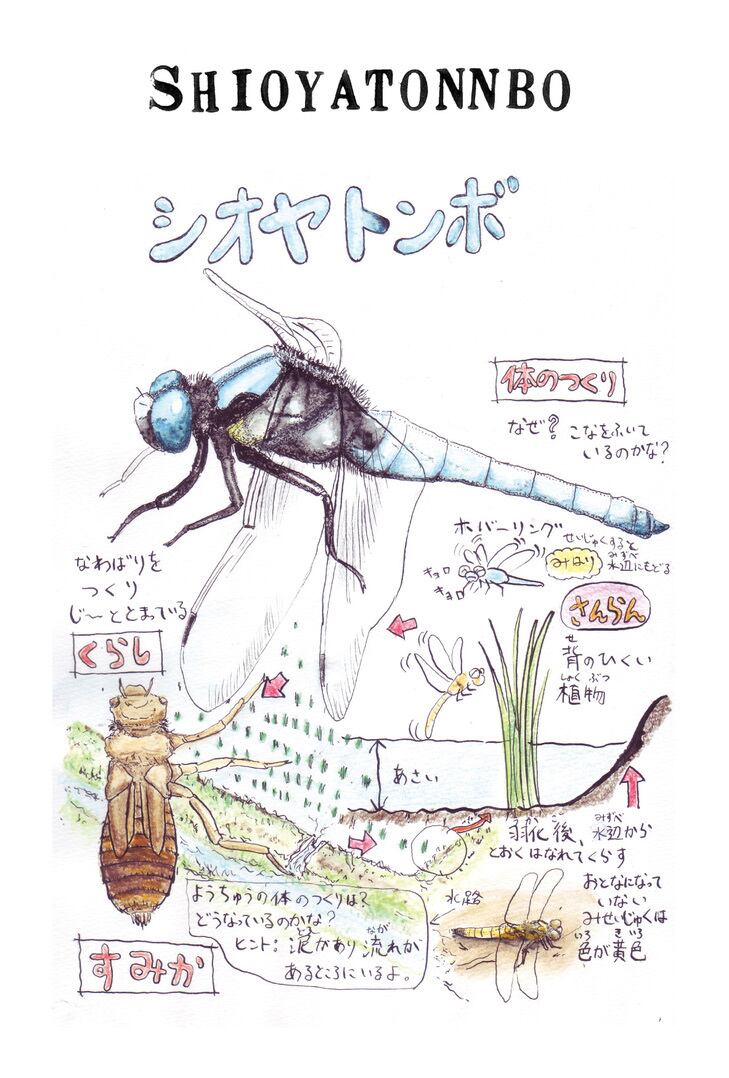 SHIOYATONNBO
シオヤトンボ
体のつくり
なぜ? こなをふいて
いるのかな?
ホバーリング
キョロ
キョロ
みはり
せいじゅくすると
みずべ
水辺にもどる
さんらん
せ
背のひくい
しょくぶつ
植物
なわばりを
つくり
じ〜ととまっている
くらし
あさい
うか ご
羽化後、
みずべ
水辺から
とおくはなれてくらす
ようちゅうの体のつくりは?
どうなっているのかな?
どろ なが
ヒント: 泥があり流れが
あるところにいるよ。
水路
おとなになって
いない
みせいじゅくは
いろ きいろ
色が黄色
すみか